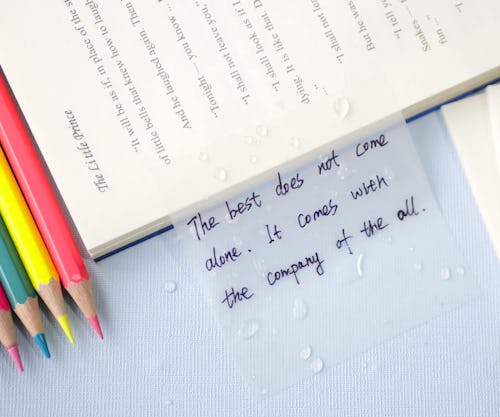 The Little Prince
"It will be as if, in place of the
of little bells that knew how to laugh
And he laughed again. Then
"Tonight — you know ...
"I shall not leave you,"
"I shall look as if I
dying. It is like that.
"I shall not
But he was
"I tell you
Snakes
fun ...
The best does not come
alone. It comes with
the company of the all.